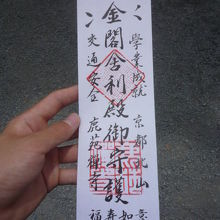 學業成就 京都北山
金閣舍利殿御守護
交通安全 鹿苑禅寺
如
寿
福